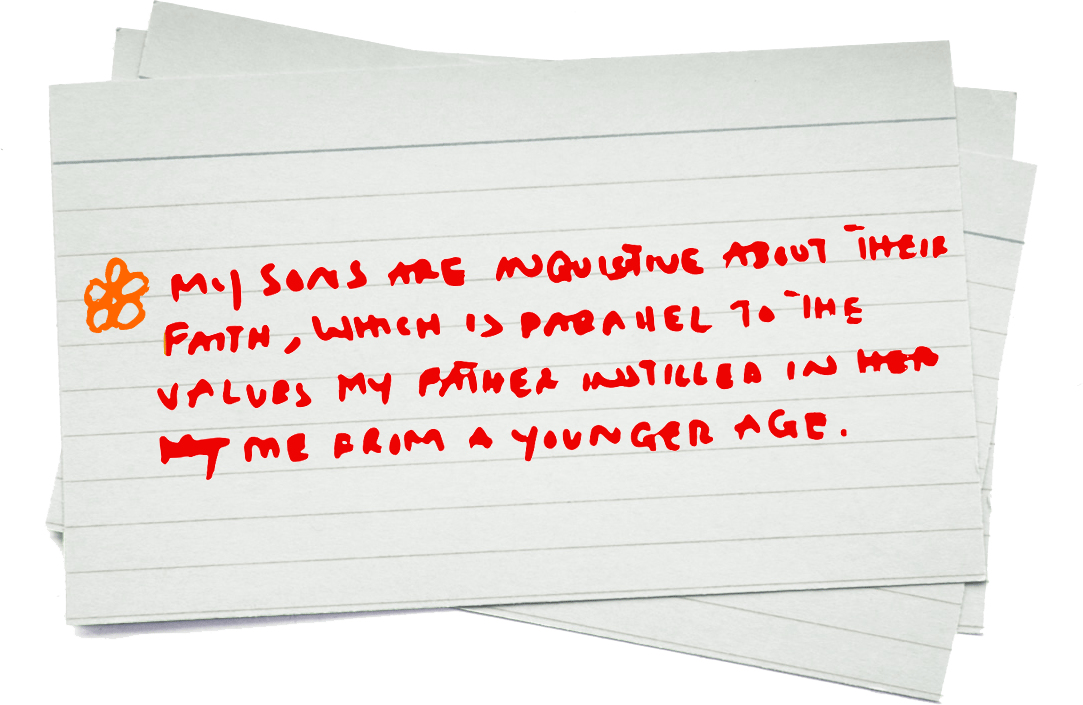 MY SONS ARE INQUISTIVE ABOUT THEIR
FAITH, WHICH IS PARALLEL TO THE
VALUES MY FATHER INSTILLED IN HER
MY ME FROM A YOUNGER AGE.